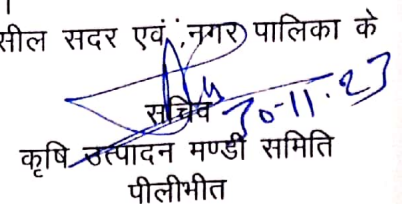 सील सदर एवं नगर पालिका के
सचिव 30-11-23
कृषि उत्पादन मण्डी समिति
पीलीभीत